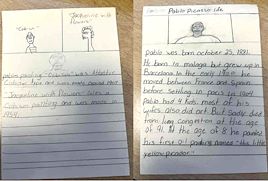 "Cubism"
"Jacqueline with
flowers"
pablo painting "Cubism" was
"Jacqueline with flowers" was a
Cubism painting and was made in
1954.
Pablo Picasso Life
pablo was born october 25, 1881.
He born in malaga but grew up in
Barcelona In the early 1900 he
moved between France and Spain
before Settling in paris in 1904
Pablo had 4 kids, most of his
wifes also did art. But Sadly died
from lung congestion at the age
of 91. At the age of 8 he painted
his first oil painting named "the little
yellow picador"